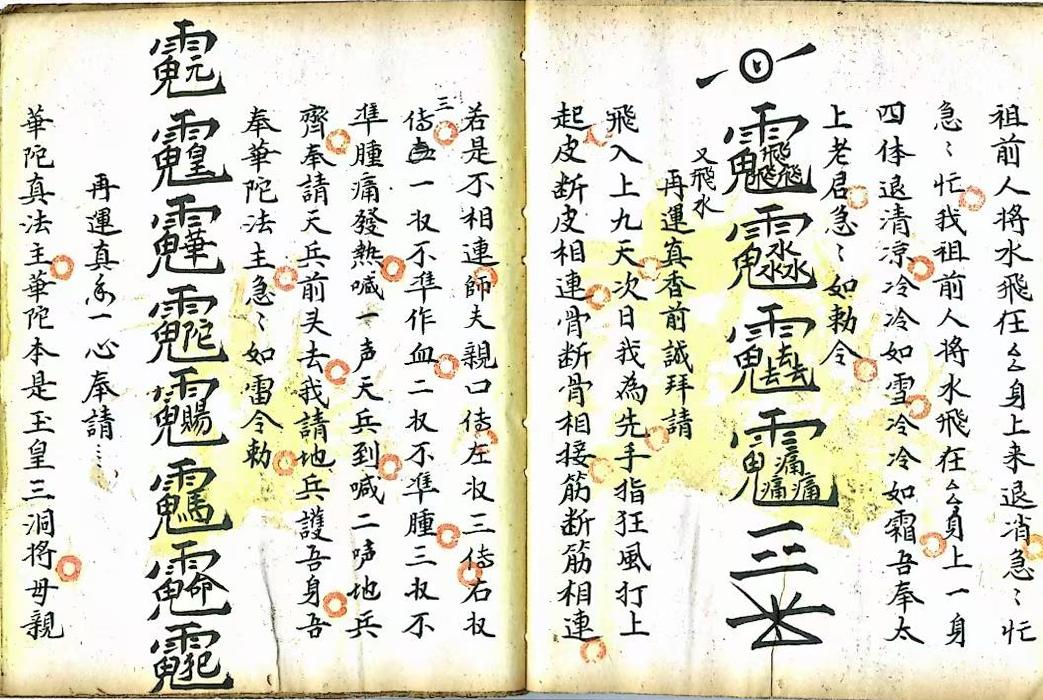 祖前人将水飛在厶厶身上来退消急〻忙
急〻忙我祖前人将水飛在厶厶身上一身
四体退清凉冷冷如雪冷冷如霜吾奉太
上老君急〻如勅令
又飛水
再運真香前誠拜請
飛入上九天次日我為先手指狂風打上
起皮断皮相連骨断骨相接筋断筋相連
若是不相連師夫親口傳左収三傳右収
三傳一収不準作血二収不準腫三収不
準腫痛發熱喊一声天兵到喊二声地兵
齊奉請天兵前头去我請地兵護吾身吾
奉華陀法主急〻如雷令勅
再運真香一心奉請
華陀真法主華陀本是玉皇三洞将母親